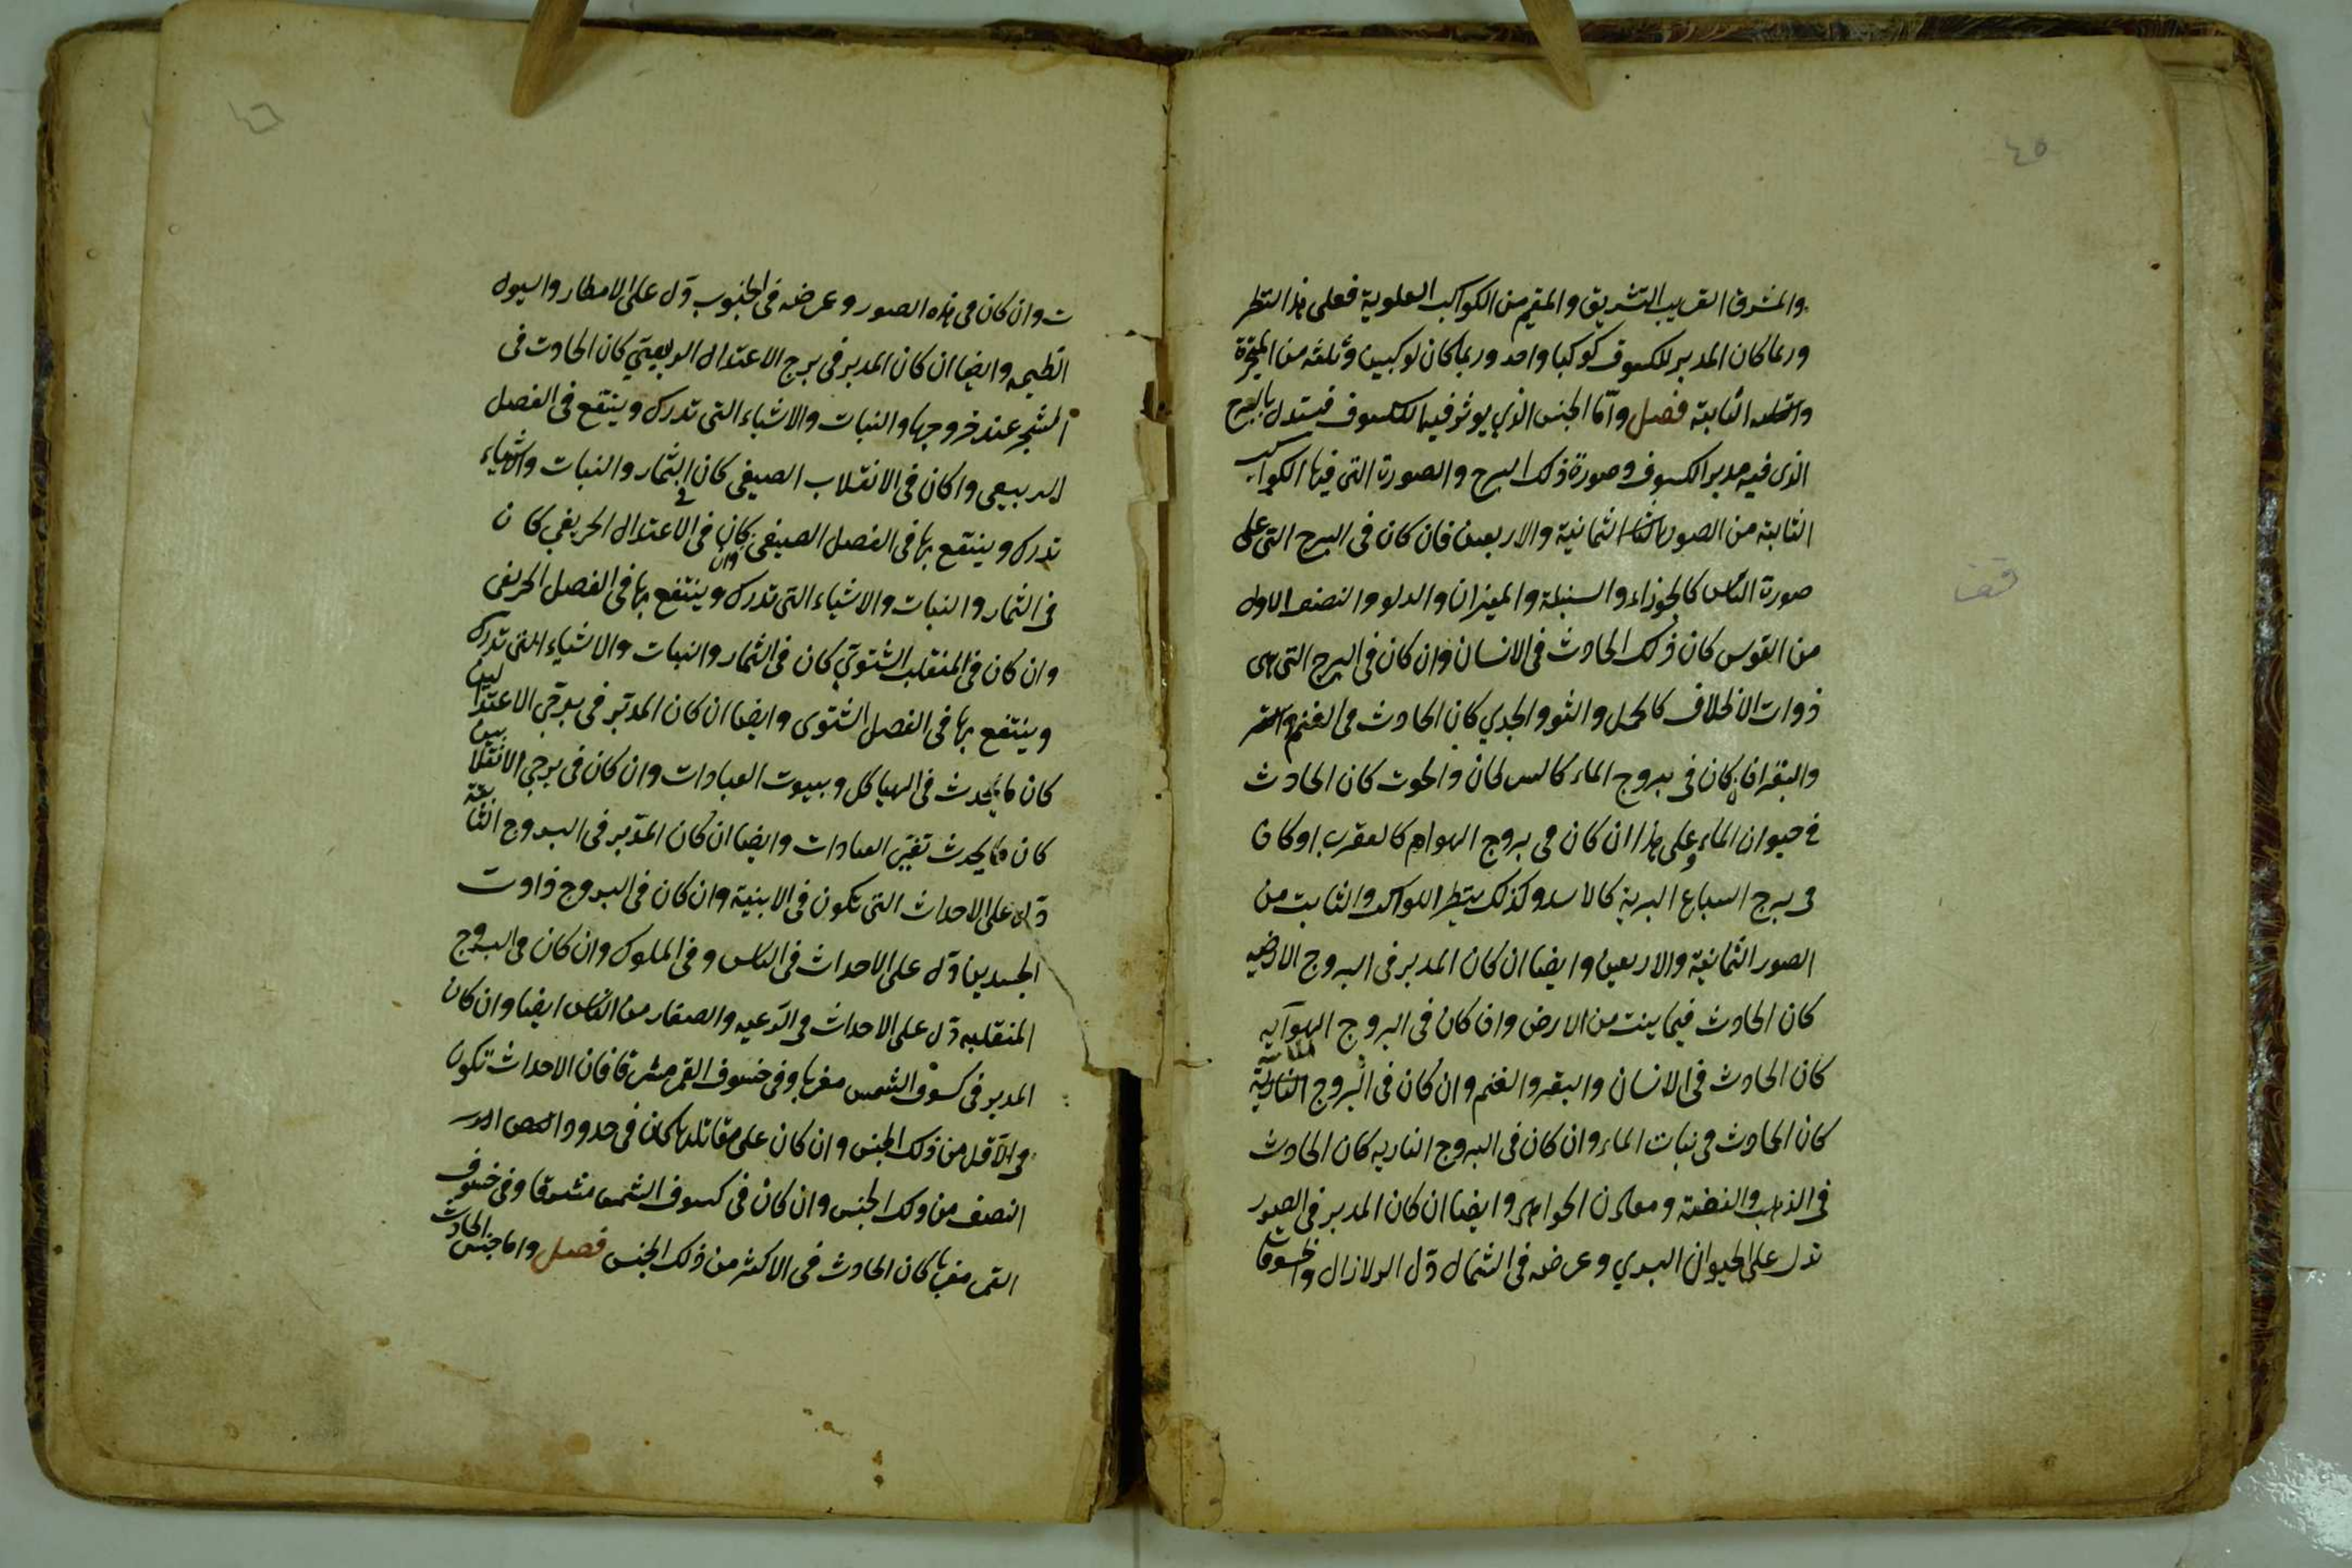 ٤٥
والمشرق القريب التشريق والمقيم من الكواكب العلوية فعلى هذا النظر
وربما كان المدبر للكسوف كوكبا واحد وربما كان لوكبين وثلثه من المتحيرة
الثابتة فصل واما الجنس الذي يوثر فيه الكسوف فيستدل بالبرج
الذى فيه مدبر الكسوف وصورة ذلك البرج والصورة التى فيها الكواكب
الثابتة من الصور الثمانية والاربعين فان كان فى البرج التى على
صورة الناس كالجوزاء والسنبلة والميزان والدلو والنصف الاول
من القوس كان ذلك الحادث فى الانسان وان كان فى البرج التى هى
ذوات الاظلاف كالحمل والثور والجدي كان الحادث فى الغنم
والبقر فان كان فى بروج الماء كالسرطان والحوت كان الحادث
فى حيوان الماء وعلى هذا ان كان فى بروج الهوام كالعقرب او كان
فى برج السباع البرية كالاسد وكذلك ينظر الكواكب الثابت من
الصور الثمانية والاربعين وايضا ان كان المدبر فى البروج الارضيه
كان الحادث فيما ينبت من الارض وان كان فى البروج الهوآيه
كان الحادث فى الانسان والبقر والغنم وان كان فى البروج المائية
كان الحادث فى نبات الماء وان كان فى البروج الناريه كان الحادث
فى الذهب والفضة ومعادن الجواهر وايضا ان كان المدبر فى الصور
تدل على الحيوان البري وعرضه فى الشمال دل الزلازال والخسوفات
قف
٤٦
ت وان كان فى هذه الصور وعرضه فى الجنوب دل على الامطار والسيول
العظيمه وايضا ان كان المدبر فى برج الاعتدال الربيعي كان الحادث فى
الشجر عند خروجها والنبات والاشياء التى تدرك وينتفع فى الفصل
الربيعى وا كان فى الانقلاب الصيفى كان فى الثمار والنبات والاشياء
تدرك وينتفع بها فى الفصل الصيفى وان كان فى الاعتدال الخريفي كان
فى الثمار والنبات والاشياء التى تدرك وينتفع بها فى الفصل الخريفى
وان كان فى المنقلب الشتوي كان فى الثمار والنبات والاشياء التى تدرك
وينتفع بها فى الفصل الشتوى وايضا ان كان المدبر فى برجي الاعتدالين
كان ما يحدث فى الهياكل وبيوت العبادات وان كان فى برجي الانقلابين
كان ما يحدث تغير العبادات وايضا ان كان المدبر فى البروج الثابتة
دل على الاحداث التى تكون فى الابنية وان كان فى البروج ذاوت
الجسدين دل على الاحداث فى الناس وفى الملوك وان كان فى البروج
المنقلبه دل على الاحداث فى الرعيه والصغار من الناس ايضا وان كان
المدبر فى كسوف الشمس مغربا وفى خسوف القمر مشرقا فان الاحداث تكون
فى الاقل من ذلك الجنس وان كان على مقابلتها كان فى حدود
النصف من ذلك الجنس وان كان فى كسوف الشمس مشرقا وفى خسوف
القمر مغربا كان الحادث فى الاكثر من ذلك الجنس فصل واما جنس الحادث